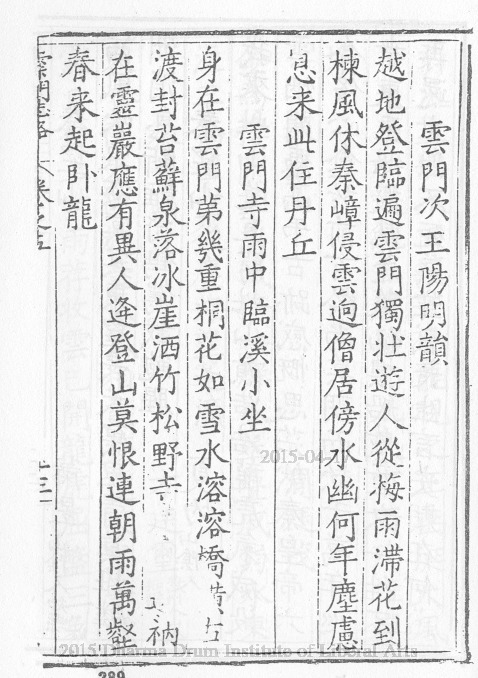 雲門次王陽明韻
越地登臨遍雲門獨壯遊人從梅雨滯花到
楝風休秦嶂侵雲逈僧居傍水幽何年塵慮
息来此住丹丘
雲門寺雨中臨溪小坐
身在雲門第幾重桐花如雪水溶溶橋
渡封苔蘚泉落冰崖洒竹松野寺衲
在靈巖應有異人逢登山莫恨連朝雨萬壑
春来起卧龍
雲門志略卷之五
十三
2015-04-
2015 Dharma Drum Institute of Liberal Arts
289